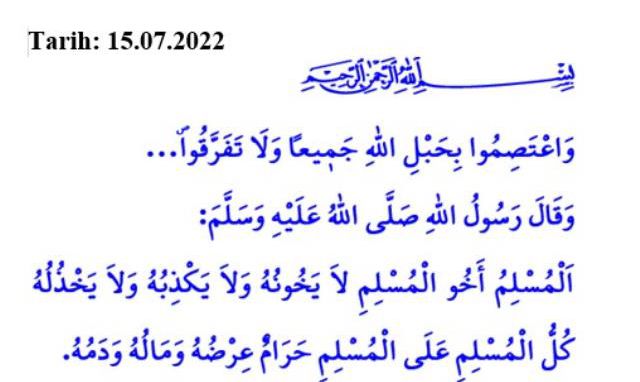 Tarih: 15.07.2022
بِسْــــــــمِ اللّٰهِ الرَّحْمٰنِ الرَّحِيمِ
وَاعْتَصِمُوا بِحَبْلِ اللّٰهِ جَم۪يعًا وَلَا تَفَرَّقُواۖ...
وَقَالَ رَسُولُ اللّٰهِ صَلَّى اللّٰهُ عَلَيْهِ وَسَلَّمَ:
اَلْمُسْلِمُ أَخُو الْمُسْلِمِ لاَ يَخُونُهُ وَلاَ يَكْذِبُهُ وَلاَ يَخْذُلُهُ
كُلُّ الْمُسْلِمِ عَلَى الْمُسْلِمِ حَرَامٌ عِرْضُهُ وَمَالُهُ وَدَمُهُ.